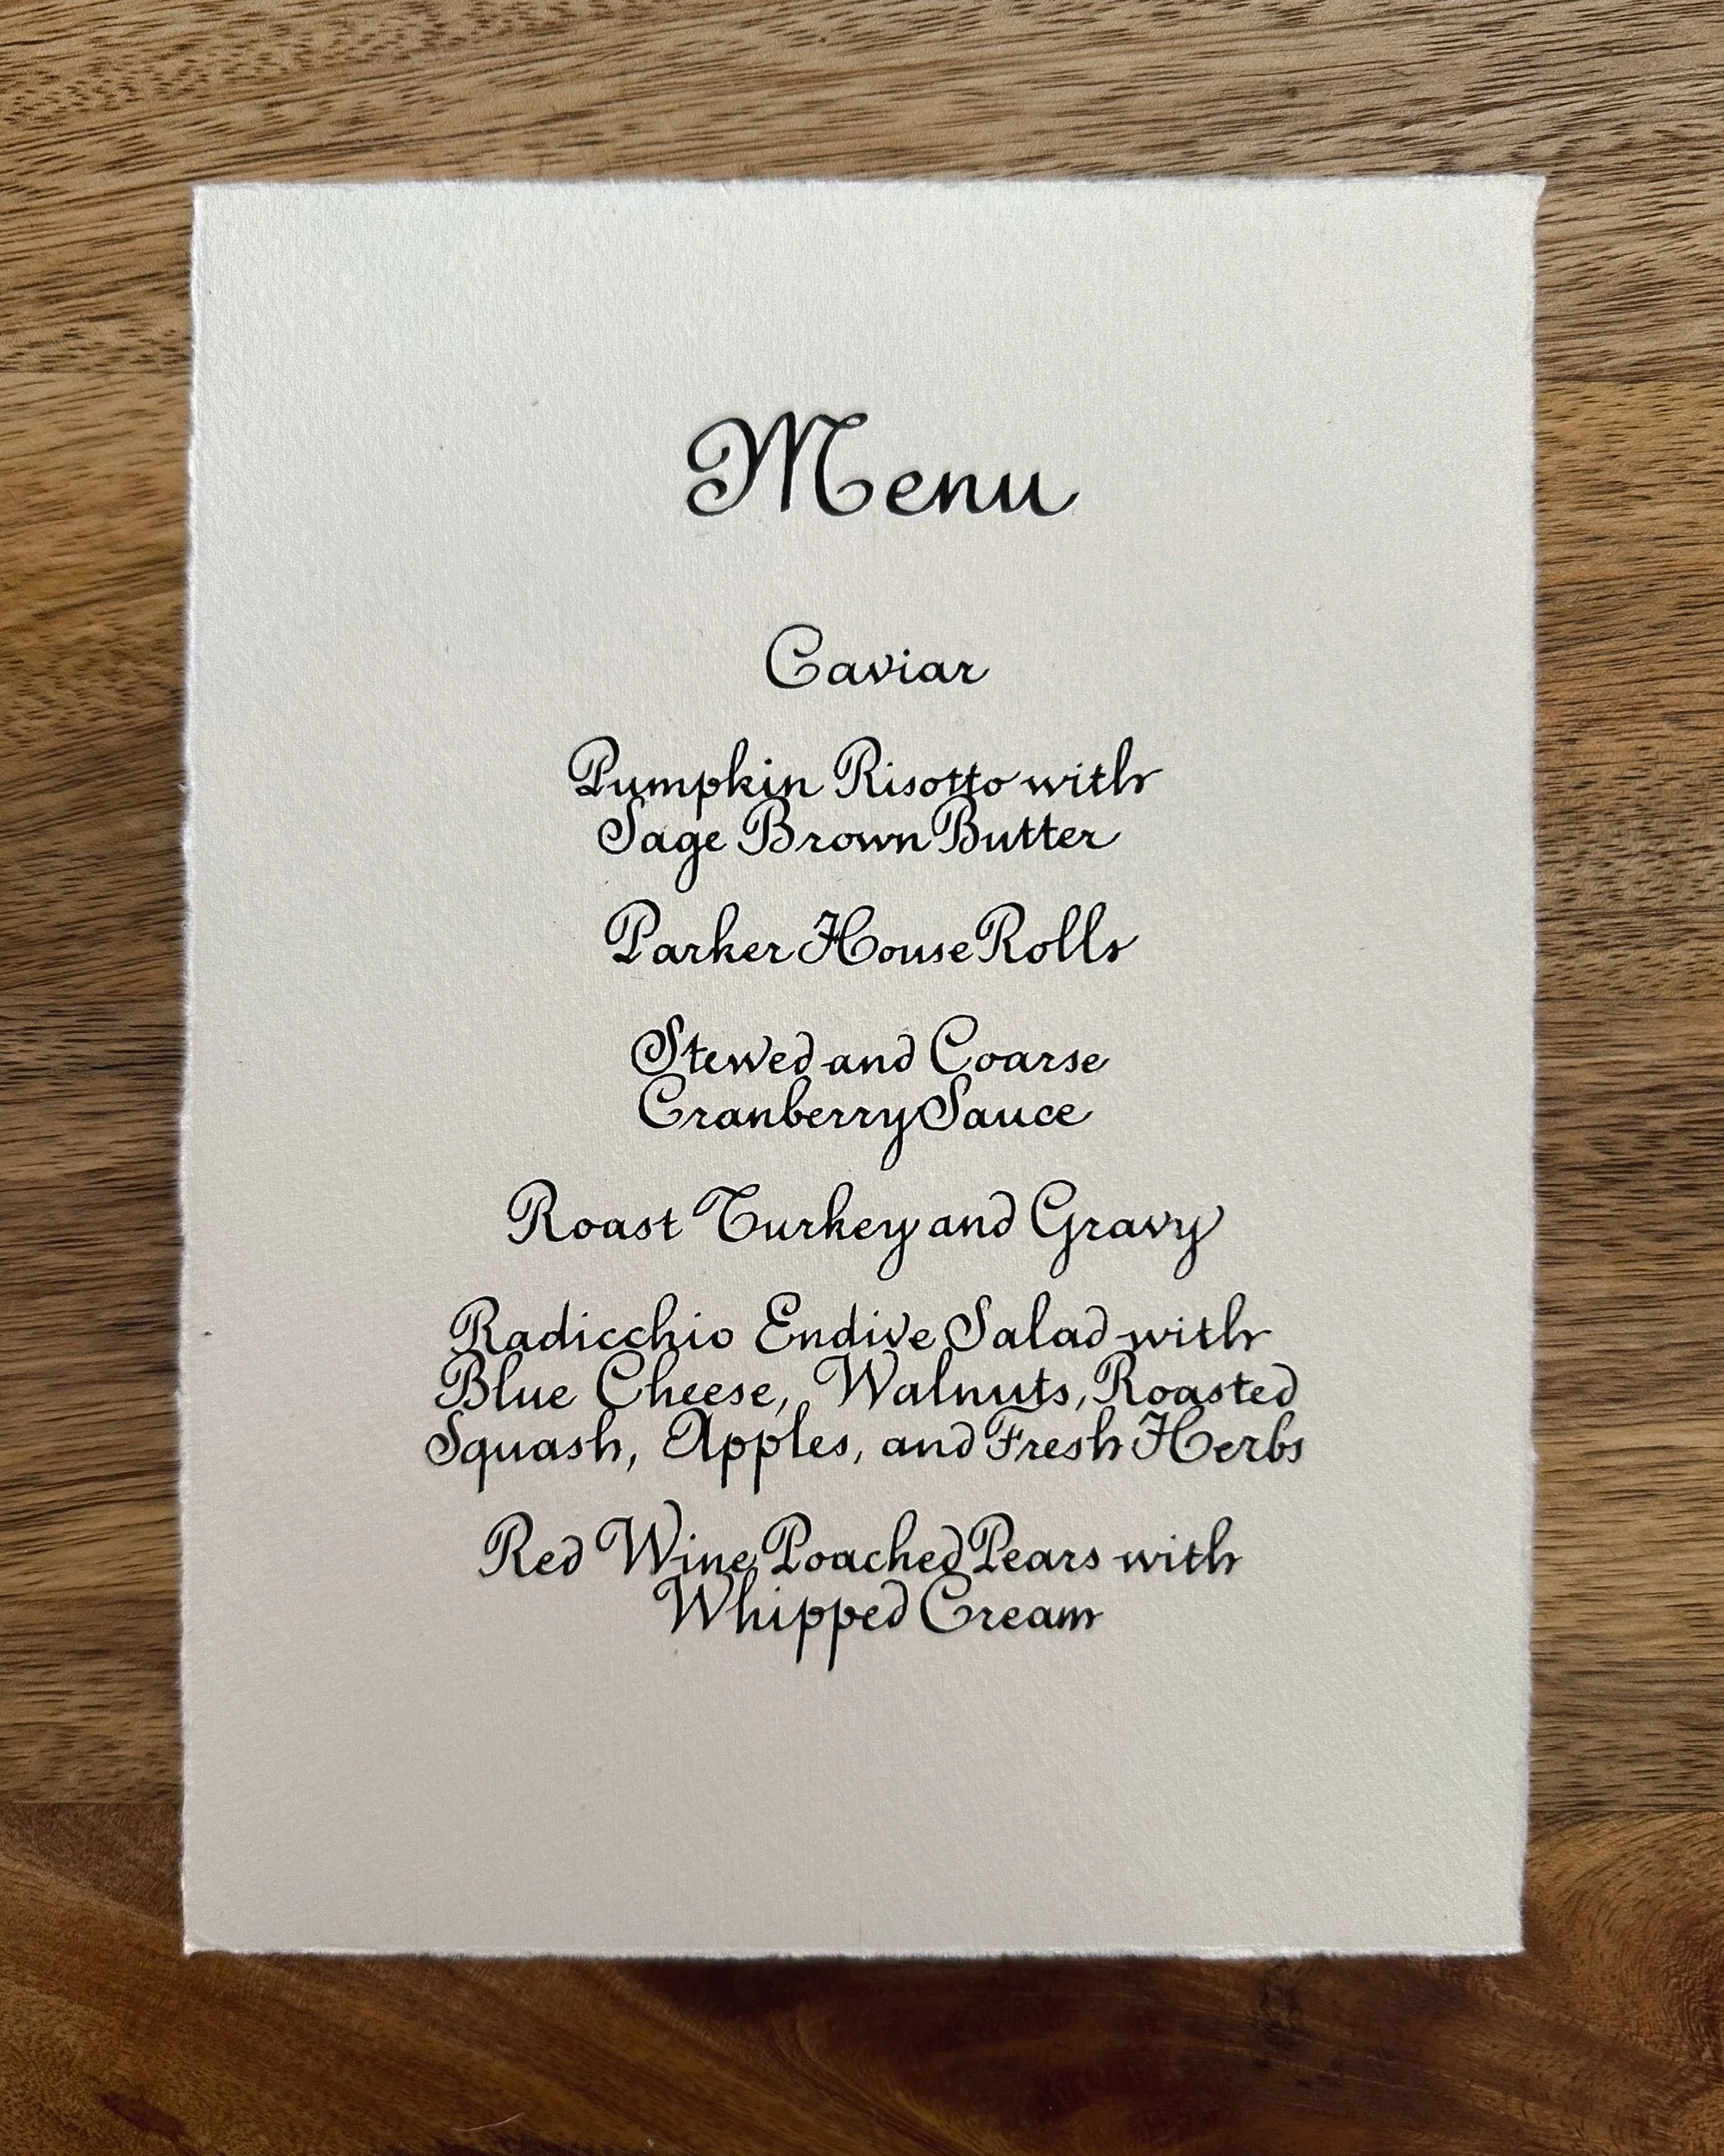 Menu
Caviar
Pumpkin Risotto with
Sage Brown Butter
Parker House Rolls
Stewed and Coarse
Cranberry Sauce
Roast Turkey and Gravy
Radicchio Endive Salad with
Blue Cheese, Walnuts, Roasted
Squash, Apples, and Fresh Herbs
Red Wine Poached Pears with
Whipped Cream